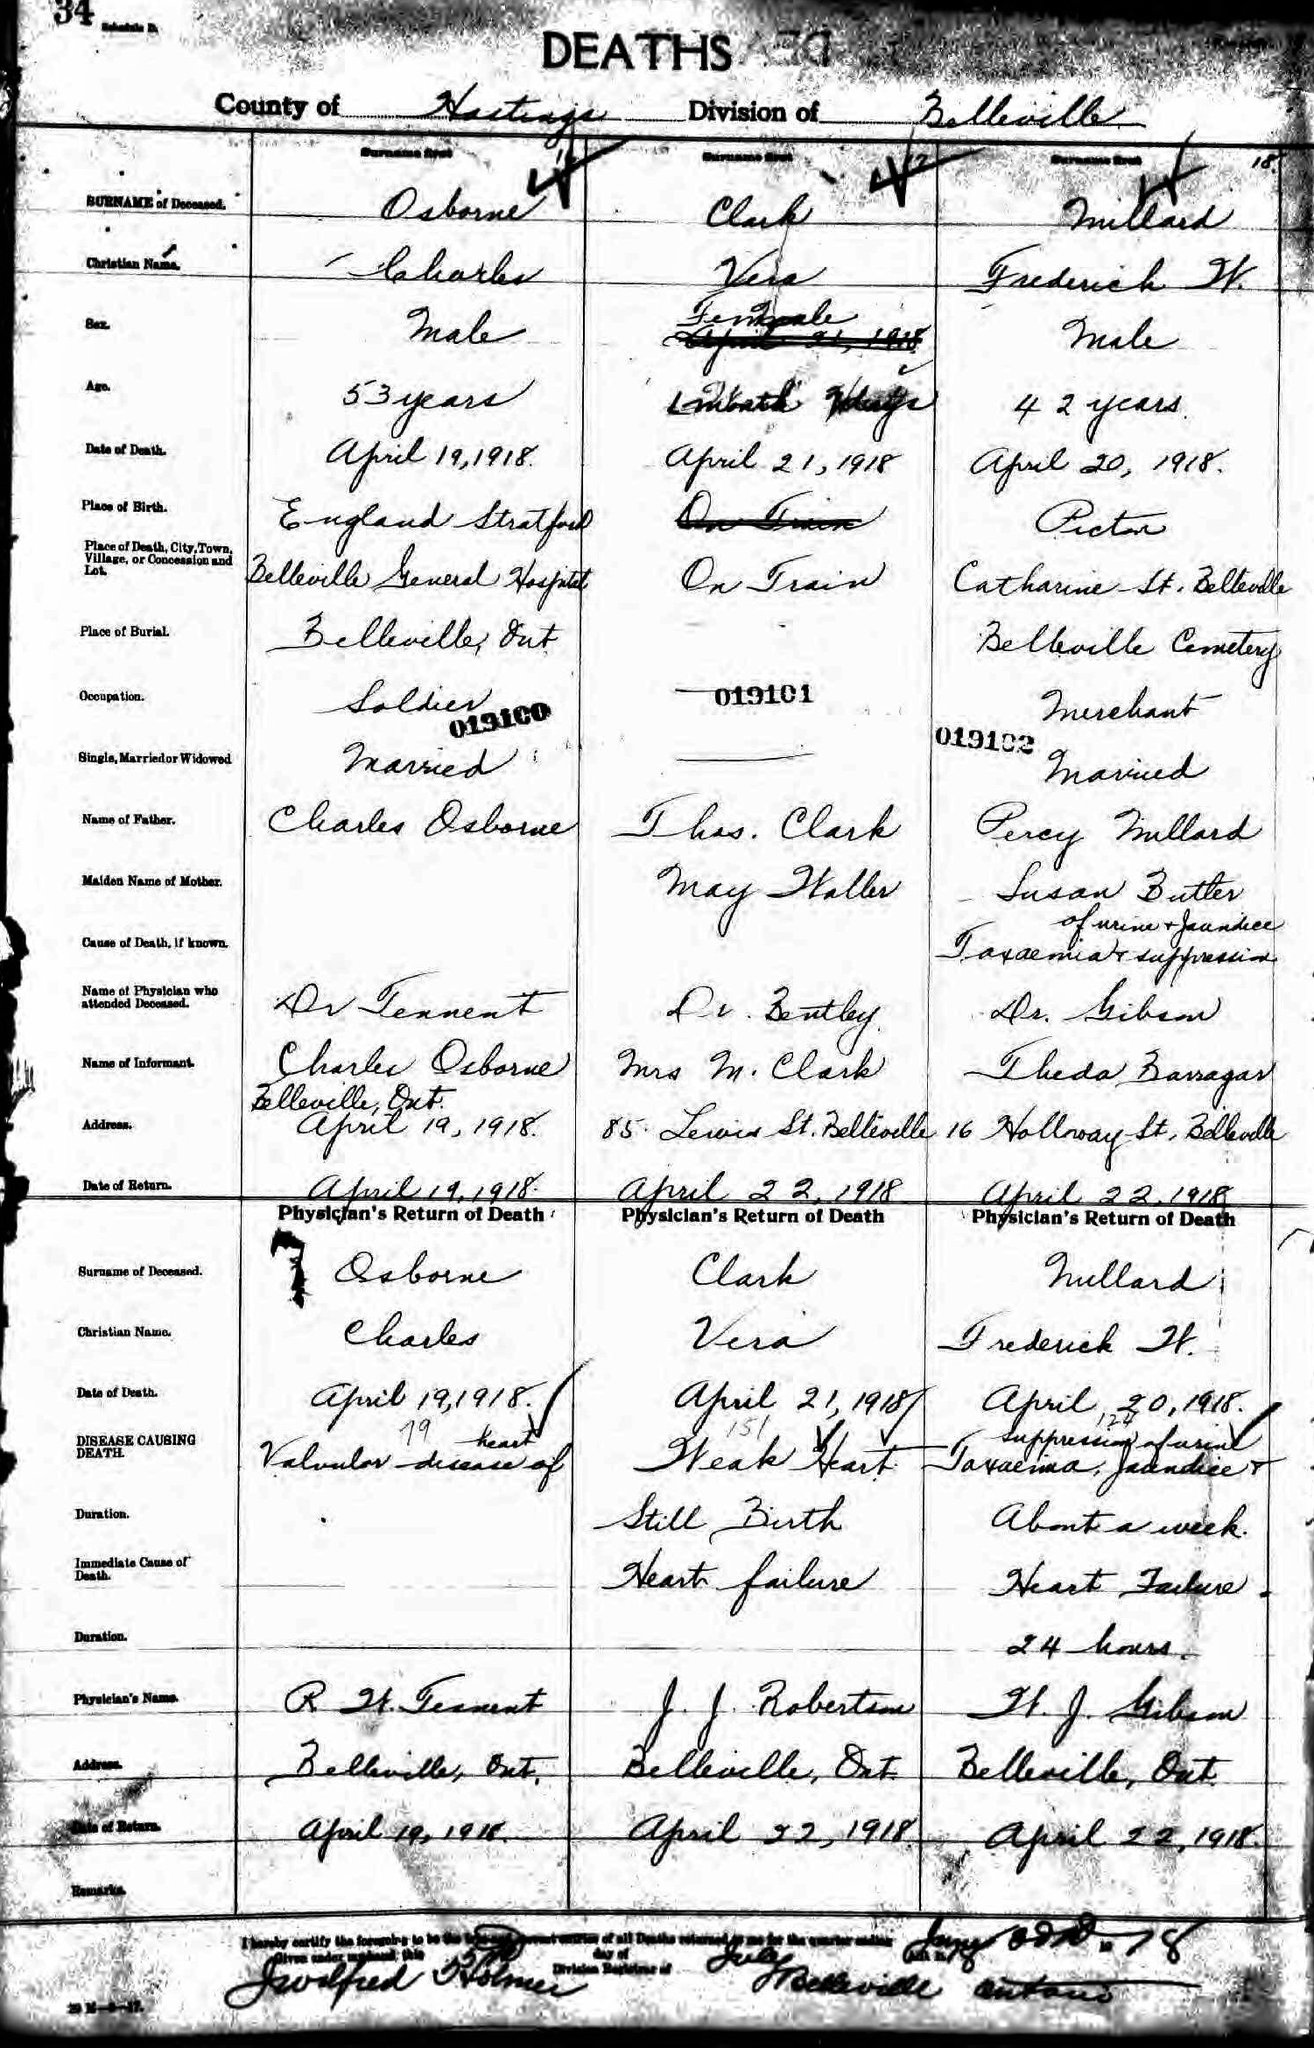 34
Schedule D.
DEATHS
County of Hastings Division of Belleville
Surname first Surname first Surname first
17 18
SURNAME of Deceased. Osborne Clark Millard
Christian Name. Charles Vera Frederick W.
Sex. Male Female Male
April 21, 1918
Age. 53 years 1 month days 42 years
Date of Death. April 19, 1918. April 21, 1918 April 20, 1918.
Place of Birth. England Stratford On Train Picton
Place of Death, City, Town, Village, or Concession and Lot. Belleville General Hospital On Train Catharine St. Belleville
Place of Burial. Belleville, Ont Belleville Cemetery
Occupation. Soldier 019101 Merchant
019100 019102
Single, Married or Widowed Married Married
Name of Father. Charles Osborne Thos. Clark Percy Millard
Maiden Name of Mother. May Waller Susan Butler
of urine + Jaundice
Cause of Death, if known. Toxaemia + suppression
Name of Physician who attended Deceased. Dr Tennent Dr. Bentley Dr. Gibson
Name of Informant. Charles Osborne Mrs M. Clark Theda Barragar
Belleville, Ont.
Address. April 19, 1918. 85 Lewis St. Belleville 16 Holloway St, Belleville
Date of Return. April 19, 1918. April 22, 1918 April 22, 1918
Physician's Return of Death Physician's Return of Death Physician's Return of Death
Surname of Deceased. Osborne Clark Millard
Christian Name. Charles Vera Frederick W.
Date of Death. April 19, 1918. April 21, 1918 April 20, 1918.
79 heart 151 124 suppression of urine
DISEASE CAUSING DEATH. Valvular disease of Weak Heart Toxaemia, Jaundice +
Duration. Still Birth About a week.
Immediate Cause of Death. Heart failure Heart Failure.
Duration. 24 hours.
Physician's Name. R W. Tennent J. J. Robertson W. J. Gibson
Address. Belleville, Ont. Belleville, Ont. Belleville, Ont.
Date of Return. April 19, 1918. April 22, 1918. April 22, 1918.
Remarks.
I hereby certify the foregoing to be the true and correct entries of all Deaths returned to me for the quarter ending 18
Given under my hand, this day of July
Holmes Division Registrar of Belleville Ontario